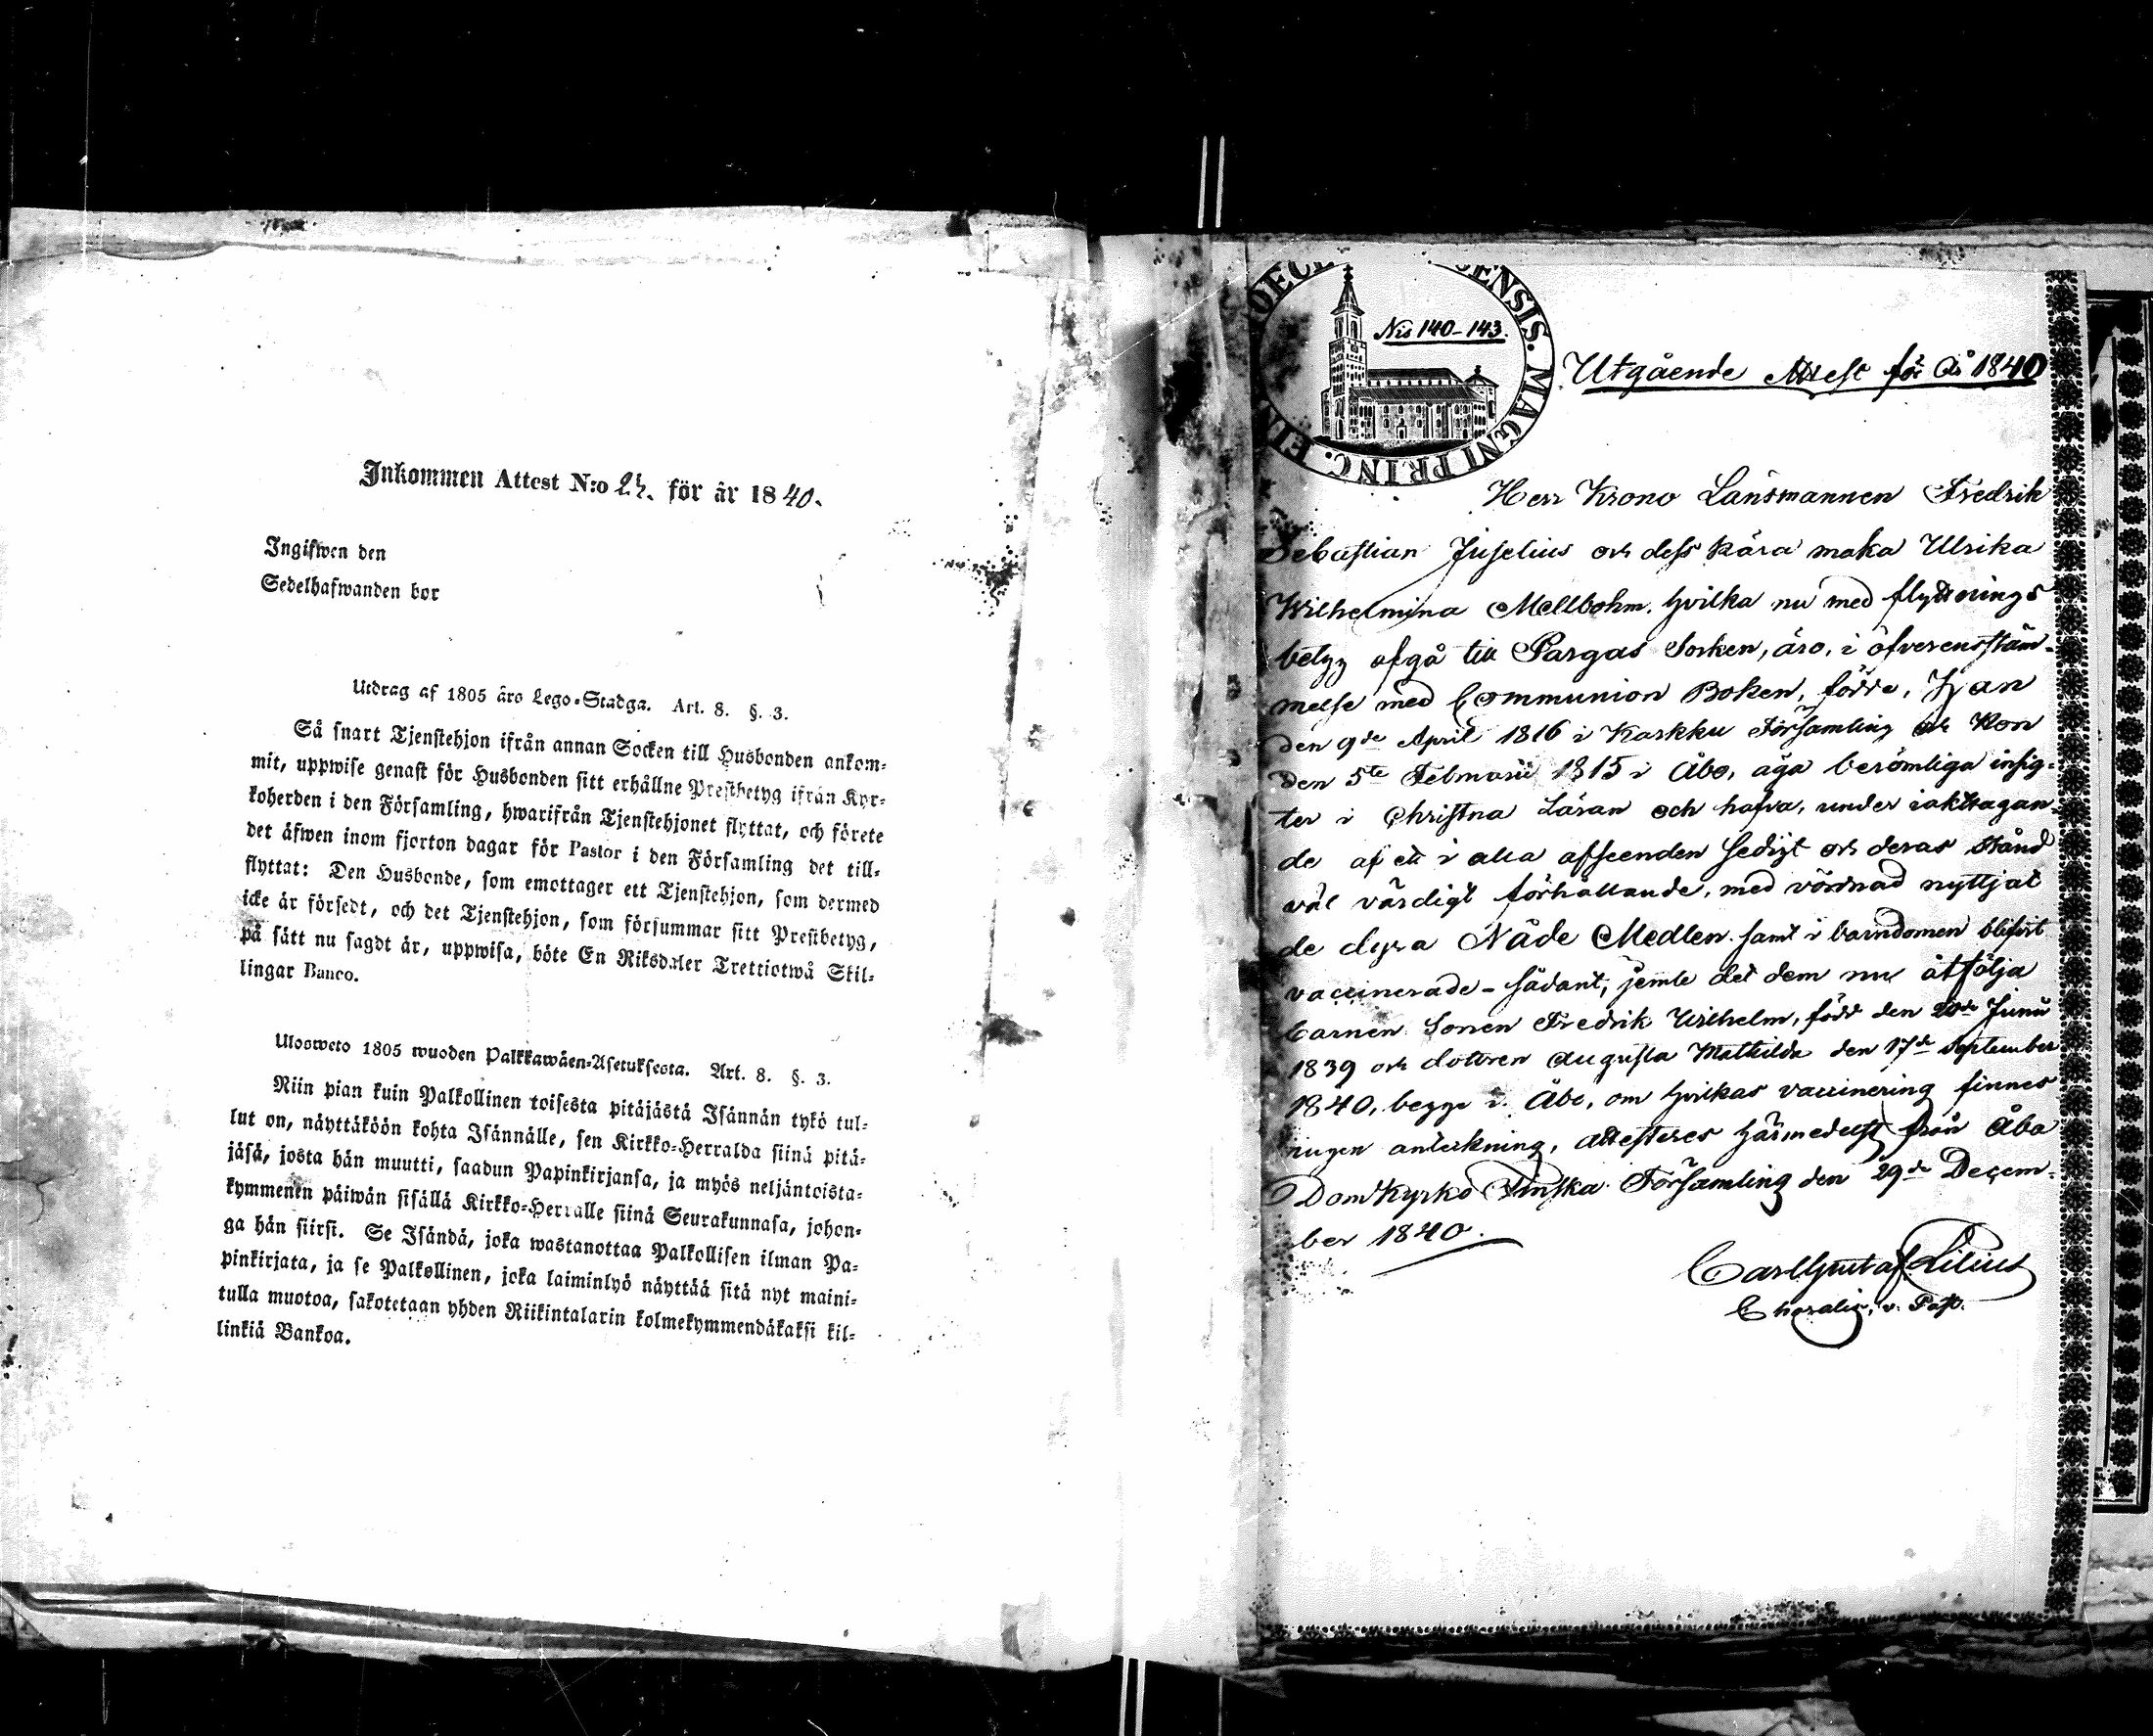 Inkommen Attest N:o 24. för år 1840.
Ingifwen den
Sedelhafwanden bor
Utdrag af 1805 års Lego-Stadga. Art. 8. §. 3.
Så snart Tjenstehjon ifrån annan Socken till Husbonden ankom-
mit, uppwise genast för Husbonden sitt erhållne Prestbetyg ifrån Kyr-
koherden i den Församling, hwarifrån Tjenstehjonet flyttat, och förete
det äfwen inom fjorton dagar för Pastor i den Församling det till-
flyttat: Den Husbonde, som emottager ett Tjenstehjon, som dermed
icke är försedt, och det Tjenstehjon, som försummar sitt Prestbetyg,
på sätt nu sagdt är, uppwisa, böte En Riksdaler Trettiotwå Skil-
lingar Banco.
Uloosweto 1805 wuoden Palkkawäen-Asetuksesta. Art. 8. §. 3.
Niin pian kuin Palkollinen toisesta pitäjästä Isännän tykö tul-
lut on, näyttäköön kohta Isännälle, sen Kirkko-Herralda siinä pitä-
jäsä, josta hän muutti, saadun Papinkirjansa, ja myös neljäntoista-
kymmenen päiwän sisällä Kirkko-Herralle siinä Seurakunnasa, johon-
ga hän siirsi. Se Isändä, joka wastanottaa Palkollisen ilman Pa-
pinkirjata, ja se Palkollinen, joka laiminlyö näyttää sitä nyt maini-
tulla muotoa, sakotetaan yhden Riikintalarin kolmekymmendäkaksi kil-
linkiä Bankoa.
ENSIS. MAGNI PRINC.
Nis 140-143.
Utgående Attest för År 1840
Herr Krono Länsmannen Fredrik
Sebastian Juselius och dess kära maka Ulrika
Wilhelmina Mellbohm, hvilka nu med flyttnings
betyg afgå till Pargas Socken, äro, i öfverensstäm-
melse med Communion Boken, födde, Han
den 9de April 1816 i Karkku Församling och Hon
den 5te Februarii 1815 i Åbo, äga berömliga insig-
ter i Christna Läran och hafva, under iakttagan-
de af ett i alla afseenden sedigt och deras stånd
väl värdigt förhållande, med vördnad nyttjat
de dyra Nåde Medlen samt i barndomen blifvit
vaccinerade - sådant, jemte det dem nu åtfölja
barnen Sonen Fredrik Wilhelm, född den 20de Junii
1839 och dottren Augusta Mathilda den 17de September
1840, begge i Åbo, om hvilkas vaccinering finnes
ingen anteckning, attesteres härmedelst från Åbo
Domkyrko Finska Församling den 29de Decem-
ber 1840.
Carl Gustaf Lilius
v. Past.